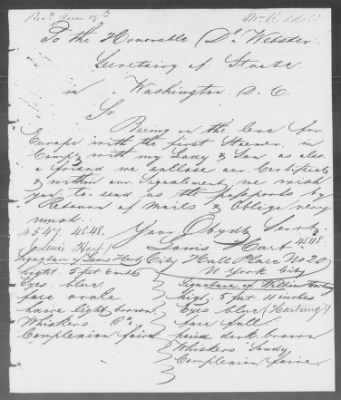 Recd June 19
To the Honorable D. Webster
Secretary of State
in Washington D. C.
Sr
Being on the leve for
Europe with the first Steamer in
Compy with my Lady & Son as also
a friend we enclose our Certificats
& within our Signalment, we wish
you to send us the passports by
Return of Mails & Oblige very
much
4547. 4548. Your Obydt Servt
Lewis Hart Louis Hart
4548
Signature of Louis Hart City Hall Place No 20
hight 5 feet 6 inch N York City
Eyes blue
face ovale
haire light brown
Whiskers Do
Complexion faire
Signature of William Hartung
high 5 feet 11 inches
Eyes blue (Hartung)
face full
haire dark brown
Whiskers Sandy
Complexion faire